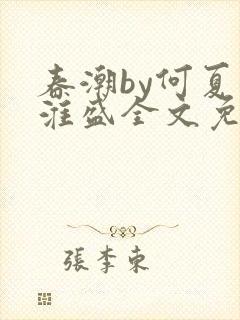 春潮by何夏
淮盛全文免
張李東